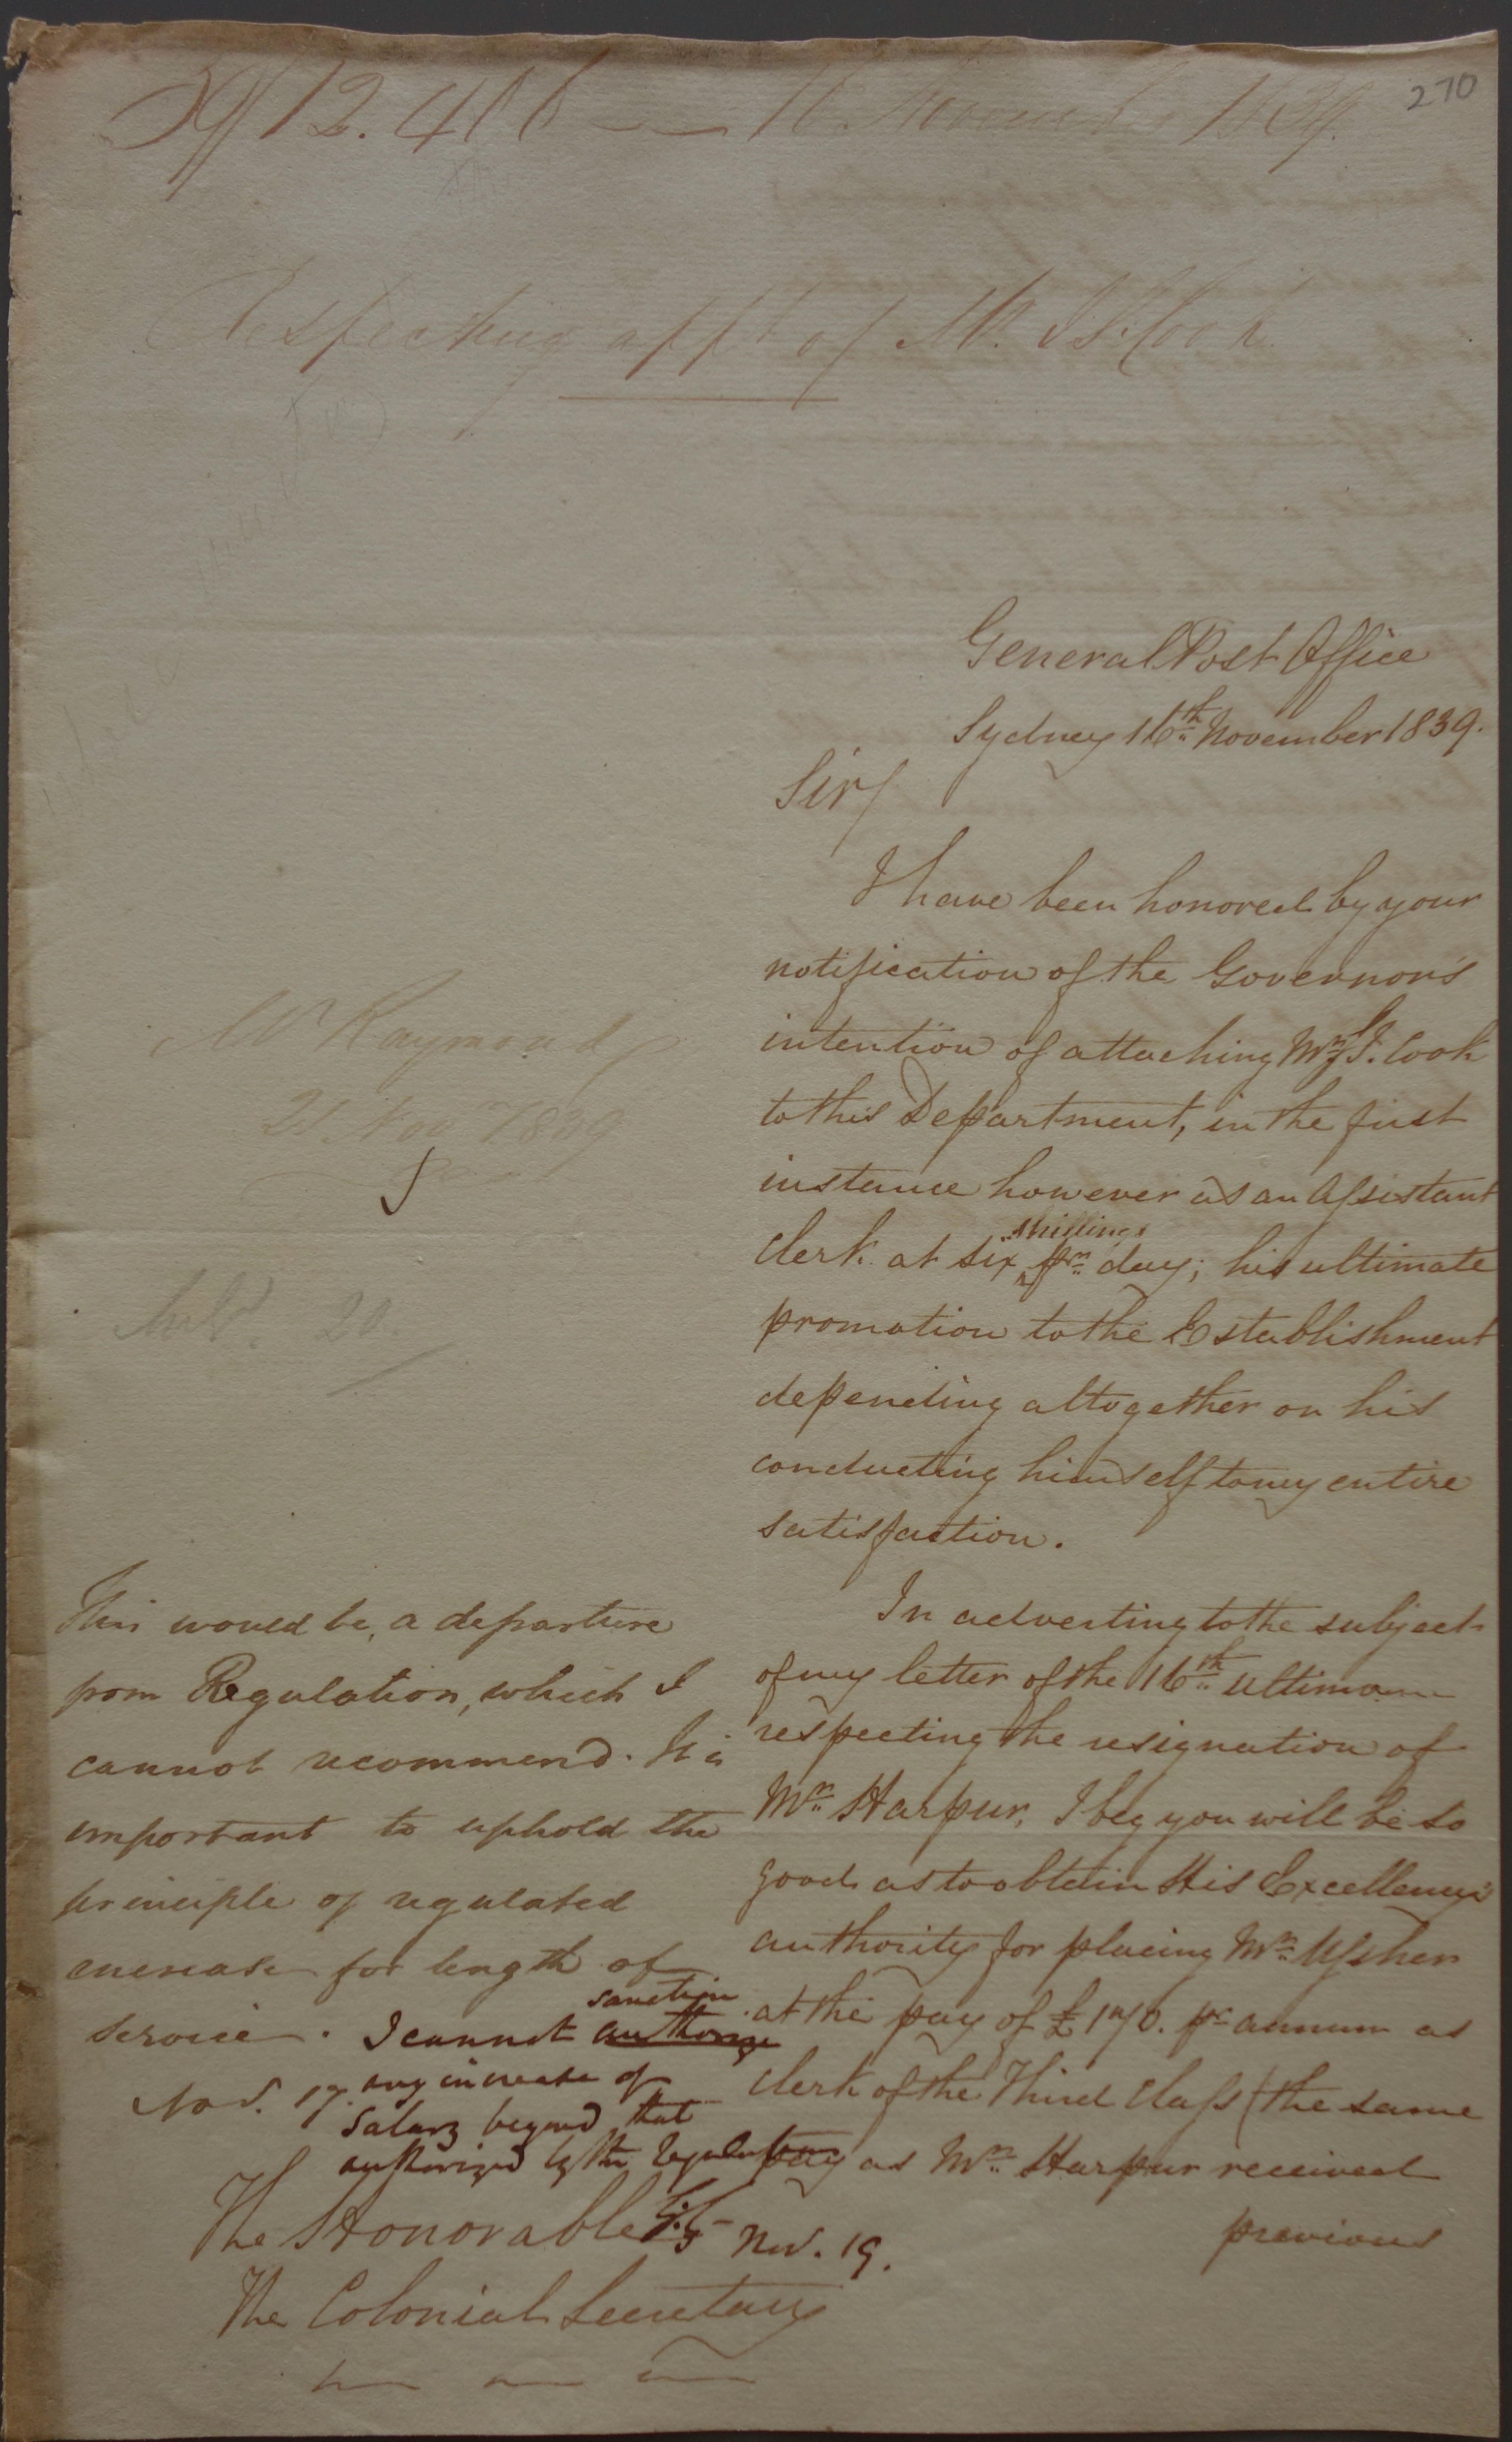 270
39/12.416 — 16 November 1839.
Respecting appt of Mr. J S. Cook
General Post Office
Sydney 16th November 1839.
Sir/
I have been honored by your
notification of the Governor's
intention of attaching Mr J. S. Cook
to this Department, in the first
instance however as an Assistant
Clerk at six shillings pr day; his ultimate
promotion to the Establishment
depending altogether on his
conducting himself to my entire
satisfaction.
In adverting to the subject
of my letter of the 16th ultimo
respecting the resignation of
Mr Harpur, I beg you will be so
good as to obtain His Excellency's
authority for placing Mr Ussher
at the pay of £ pr annum as
Clerk of the Third Class (the same
pay as Mr Harpur received
previous
Mr Raymond
21 Nov 1839
20
This would be a departure
from Regulation, which I
cannot recommend. It is
important to uphold the
principle of regulated
increase for length of
service.
Nov. 17.
I cannot authorize sanction
any increase of
Salary beyond that
authorized by the Regulations
G.G Nov. 19.
The Honorable
The Colonial Secretary